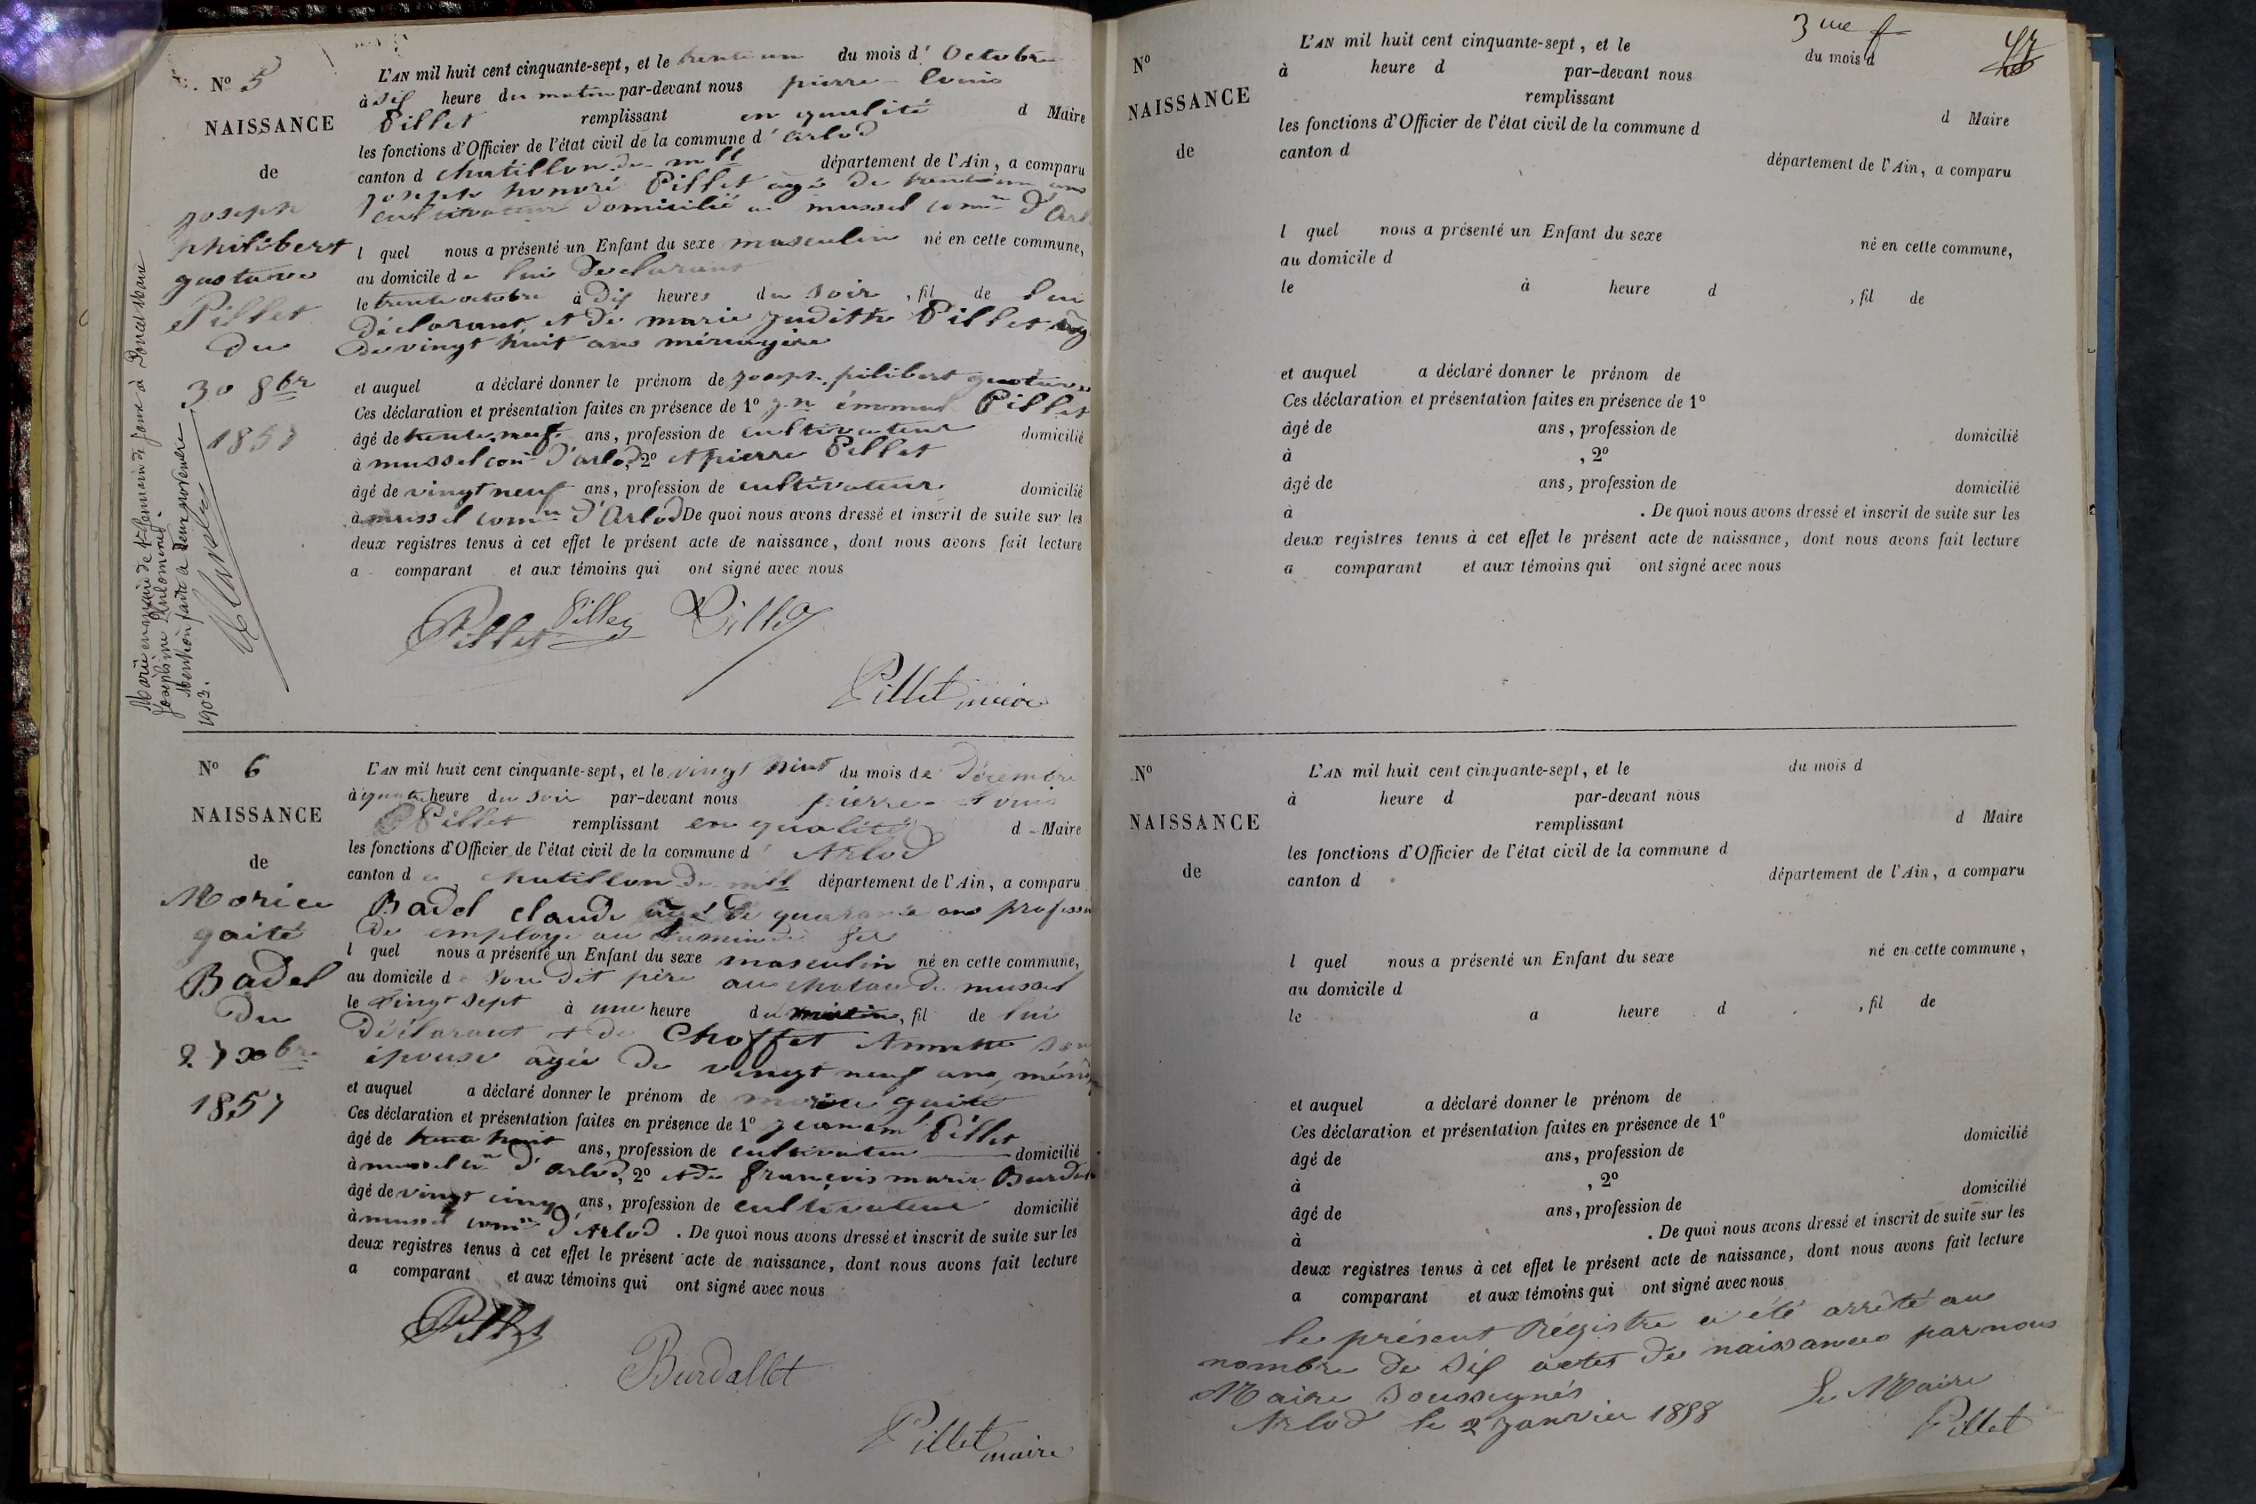 N° 5
NAISSANCE
de
joseph
philibert
gustave
Pillet
du
30 8bre
1857
L'AN mil huit cent cinquante-sept, et le trente un du mois d' Octobre
à dix heure du matin par-devant nous pierre Louis
Pillet remplissant en qualité d Maire
les fonctions d'Officier de l'état civil de la commune d' arlod
canton d chatillon de mlle département de l'Ain, a comparu
joseph honoré Pillet agé de trente un ans
cultivateur domicilié a mussel comne d'Arl
l quel nous a présenté un Enfant du sexe masculin né en cette commune,
au domicile de lui déclarant
le trente octobre à Dix heures du soir, fil de lui
Déclarant et de marie judith Pillet
de vingt huit ans ménagère
et auquel a déclaré donner le prénom de joseph pilibert gustave
Ces déclaration et présentation faites en présence de 1° Pillet
âgé de trente neuf ans, profession de cultivateur domicilié
à mussel com d'arlod, 2° et pierre Pillet
âgé de vingt neuf ans, profession de cultivateur domicilié
à mussel comne d'Arlod De quoi nous avons dressé et inscrit de suite sur les
deux registres tenus à cet effet le présent acte de naissance, dont nous avons fait lecture
a comparant et aux témoins qui ont signé avec nous
Pillet Pillet Pillet
Pillet maire
Joséphine
Mention faite à
1902.
N° 6
NAISSANCE
de
Morice
gaité
Badel
du
27 xbre
1857
L'AN mil huit cent cinquante-sept, et le vingt huit du mois de Décembre
à quatre heure du soir par-devant nous pierre Louis
Pillet remplissant en qualité d Maire
les fonctions d'Officier de l'état civil de la commune d' Arlod
canton de chatillon de mlle département de l'Ain, a comparu
Badel claude agé de quarante ans profession
de employé au chemin de fer
l quel nous a présenté un Enfant du sexe masculin né en cette commune,
au domicile de son dit père au chatau de mussel
le vingt sept à une heure du matin, fil de lui
Déclarant et de Choffet Annette son
épouse agée de vingt neuf ans,
et auquel a déclaré donner le prénom de morice gaité
Ces déclaration et présentation faites en présence de 1° Pillet
âgé de trente huit ans, profession de cultivateur domicilié
à mussel cne d'arlod, 2° et de françois marie Burdallet
âgé de vingt cinq ans, profession de cultivateur domicilié
à mussel comne d'Arlod. De quoi nous avons dressé et inscrit de suite sur les
deux registres tenus à cet effet le présent acte de naissance, dont nous avons fait lecture
a comparant et aux témoins qui ont signé avec nous
Pillet
Burdallet
Pillet maire
3me f
N°
NAISSANCE
de
L'AN mil huit cent cinquante-sept, et le du mois d
à heure d par-devant nous
remplissant d Maire
les fonctions d'Officier de l'état civil de la commune d
canton d département de l'Ain, a comparu
l quel nous a présenté un Enfant du sexe né en cette commune,
au domicile d
le à heure d , fil de
et auquel a déclaré donner le prénom de
Ces déclaration et présentation faites en présence de 1°
âgé de ans, profession de domicilié
à , 2°
âgé de ans, profession de domicilié
à . De quoi nous avons dressé et inscrit de suite sur les
deux registres tenus à cet effet le présent acte de naissance, dont nous avons fait lecture
a comparant et aux témoins qui ont signé avec nous
N°
NAISSANCE
de
L'AN mil huit cent cinquante-sept, et le du mois d
à heure d par-devant nous
remplissant d Maire
les fonctions d'Officier de l'état civil de la commune d
canton d département de l'Ain, a comparu
l quel nous a présenté un Enfant du sexe né en cette commune,
au domicile d
le a heure d , fil de
et auquel a déclaré donner le prénom de
Ces déclaration et présentation faites en présence de 1°
âgé de ans, profession de domicilié
à , 2°
âgé de ans, profession de domicilié
à . De quoi nous avons dressé et inscrit de suite sur les
deux registres tenus à cet effet le présent acte de naissance, dont nous avons fait lecture
a comparant et aux témoins qui ont signé avec nous
le présent Régistre a été arrêté au
nombre de six actes de naissances par nous
Maire soussignés
Arlod le 2 janvier 1858 Le Maire
Pillet